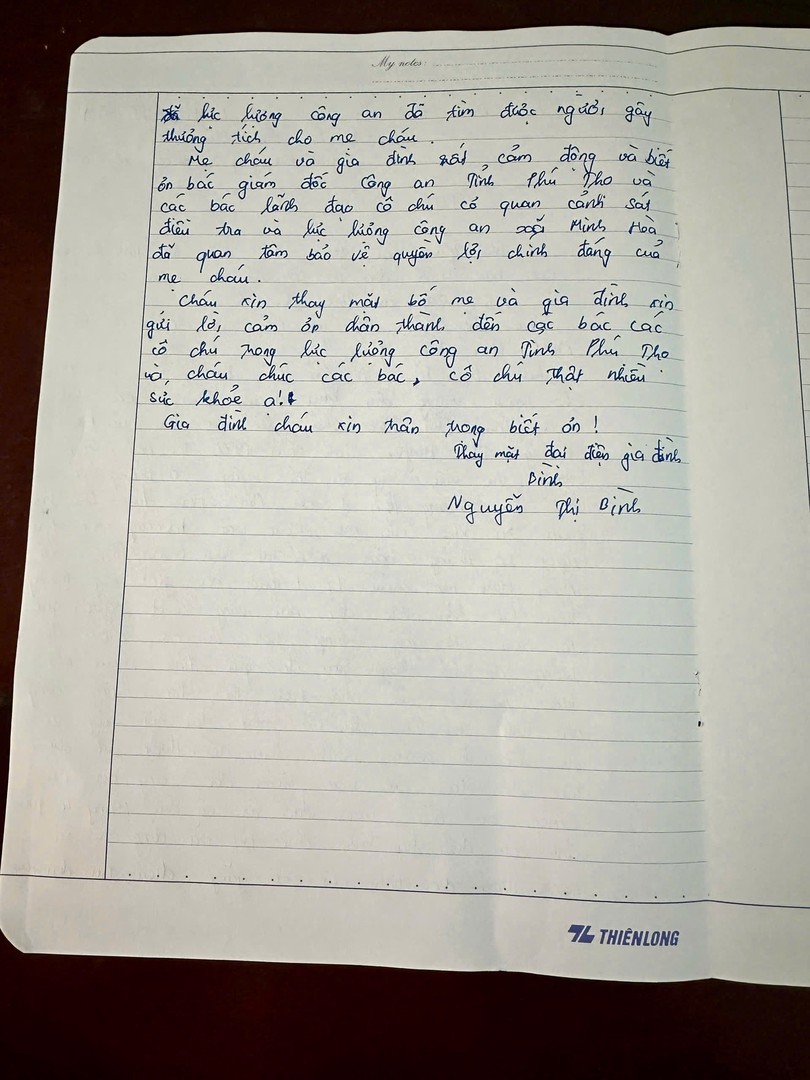 My notes:
lực lượng công an đã tìm được người gây
thương tích cho mẹ cháu.
Mẹ cháu và gia đình rất cảm động và biết
ơn bác giám đốc Công an Tỉnh Phú Thọ và
các bác lãnh đạo cô chú cơ quan cảnh sát
điều tra và lực lượng công an xã Minh Hoà
đã quan tâm bảo vệ quyền lợi chính đáng của
mẹ cháu.
Cháu xin thay mặt bố mẹ và gia đình xin
gửi lời cảm ơn chân thành đến các bác các
cô chú trong lực lượng công an Tỉnh Phú Thọ
và, cháu chúc các bác, cô chú thật nhiều
sức khoẻ ạ!
Gia đình cháu xin trân trọng biết ơn!
Thay mặt đại diện gia đình
Bình
Nguyễn Thị Bình
THIÊN LONG